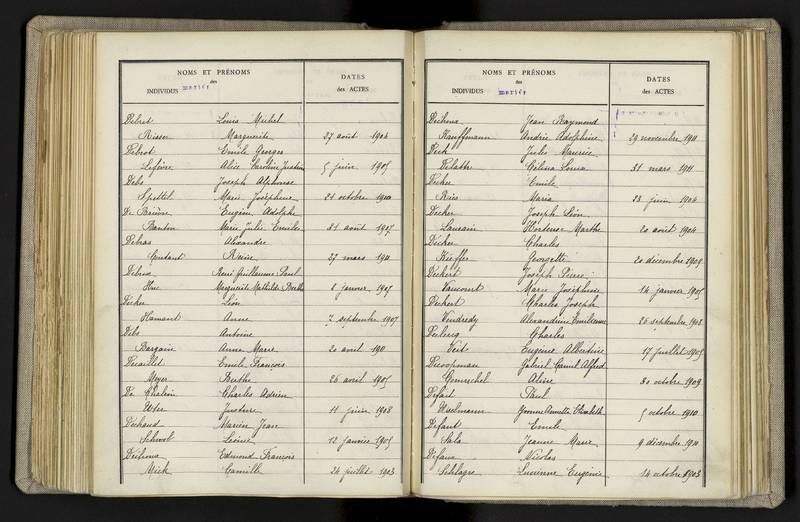 NOMS ET PRÉNOMS
des
INDIVIDUS mariés
DATES
des ACTES
Debrot Louis Michel
Risser Marguerite 27 août 1904
Debrot Emile Georges
Lefèvre Alice Caroline 5 juin 1905
Debs Joseph Alphonse
Spittel Marie Joséphine 21 octobre 1910
De Brière Eugène Adolphe
Banton Marie Julie 31 août 1907
Debras Alexandre
Reine 27 mars 1911
René Guillaume Paul
Huc Marguerite Mathilde Berthe 8 janvier 1907
Decker Léon
Hamant Anne 7 septembre 1907
Debs Antoine
Bargain Anne Marie 20 avril
Decaillet Emile François
Meyer Berthe 26 avril 1905
De Charles Adrien
11 juin 1908
Dechand Marien Jean
Schwob 12 janvier 1905
Edmond François
Mick Camille 24 juillet 1903
NOMS ET PRÉNOMS
des
INDIVIDUS mariés
DATES
des ACTES
Jean Raymond
Kauffmann Andrée Adolphine 29 novembre 1911
Deck Jules Maurice
Delatte Célina Louise 31 mars 1911
Decker Emile
Ries Maria 23 juin 1904
Decker Joseph Léon
Hortense Marthe 20 août 1904
Decker Charles
Kieffer Georgette 20 décembre 1909
Deckert Joseph Pierre
Vancourt Marie Joséphine 14 janvier 1905
Deckert Charles Joseph
Vendredy Alexandrine 26 septembre 1903
Declercq Charles
Veit Eugénie Albertine 17 juillet 1905
Decoopman Gabriel Camil Alfred
Gomrschel Aline 30 octobre 1909
Defait Paul
Uselmann Yvonne Annette Elisabeth 5 octobre 1910
Defaut Emile
Sala Jeanne Marie 9 décembre 1911
Defaux Nicolas
Schlagre Lucienne Eugénie 14 octobre 1903